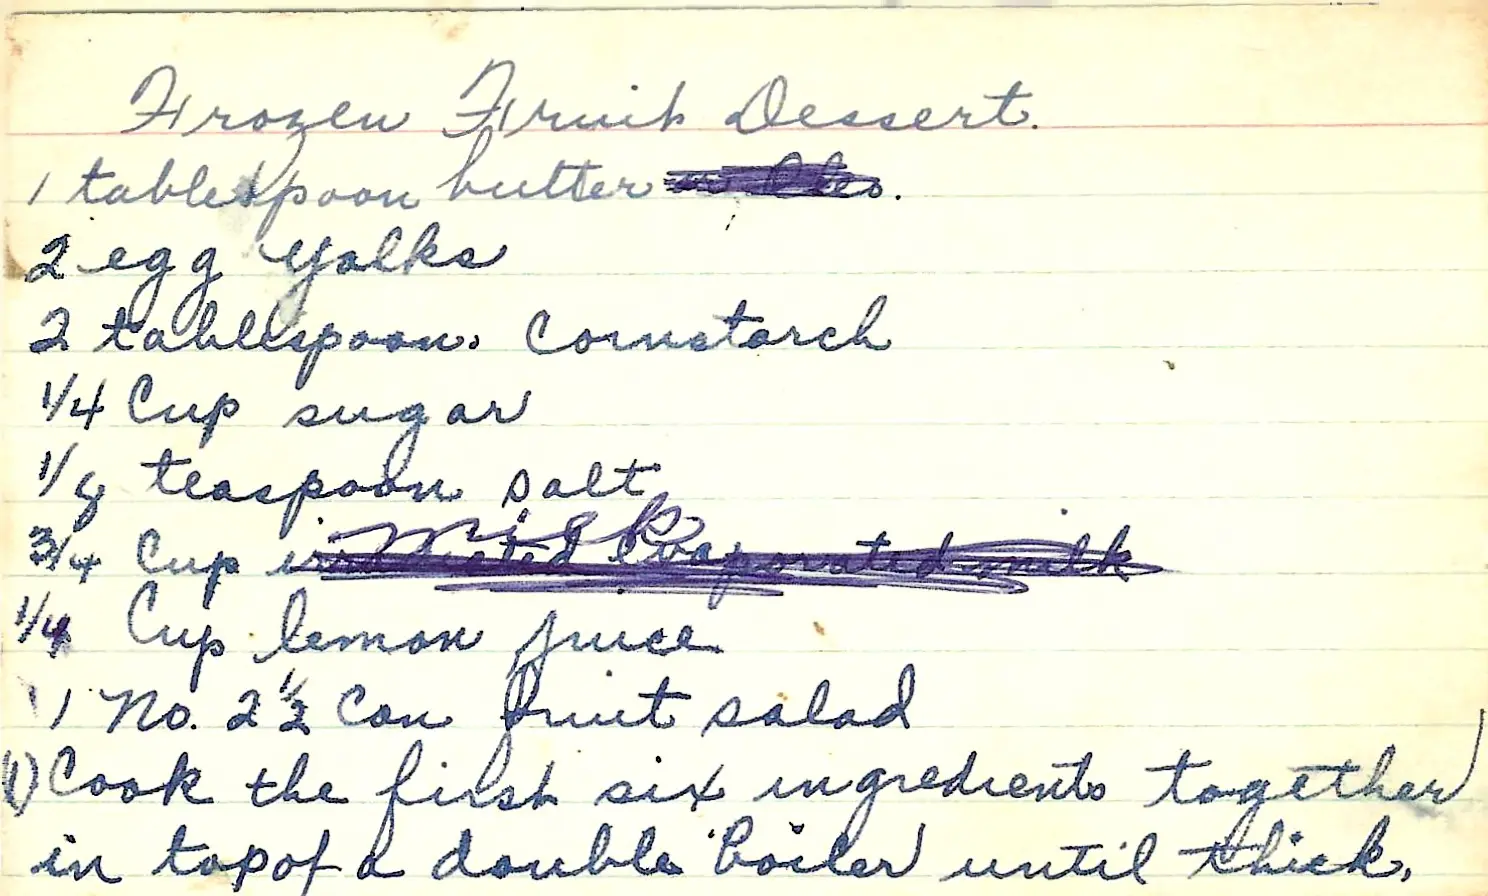 Frozen Fruit Dessert.
1 tablespoon butter or Oleo.
2 egg yolks
2 tablespoon. Cornstarch
1/4 Cup sugar
1/8 teaspoon salt
milk
3/4 Cup irradiated evaporated milk
1/4 Cup lemon juice
1 No. 2 1/2 Can fruit salad
(1) Cook the first six ingredients together
in top of a double boiler until thick.